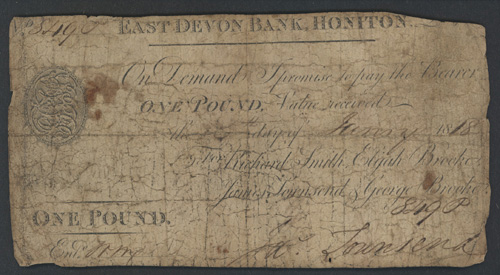 8490
EAST DEVON BANK, HONITON.
On Demand I promise to pay the Bearer
ONE POUND, Value received
the day of 1818
For Richard Smith, Elijah Brooke
James Townsend & George Brooke
ONE POUND.
Jas. Townsend